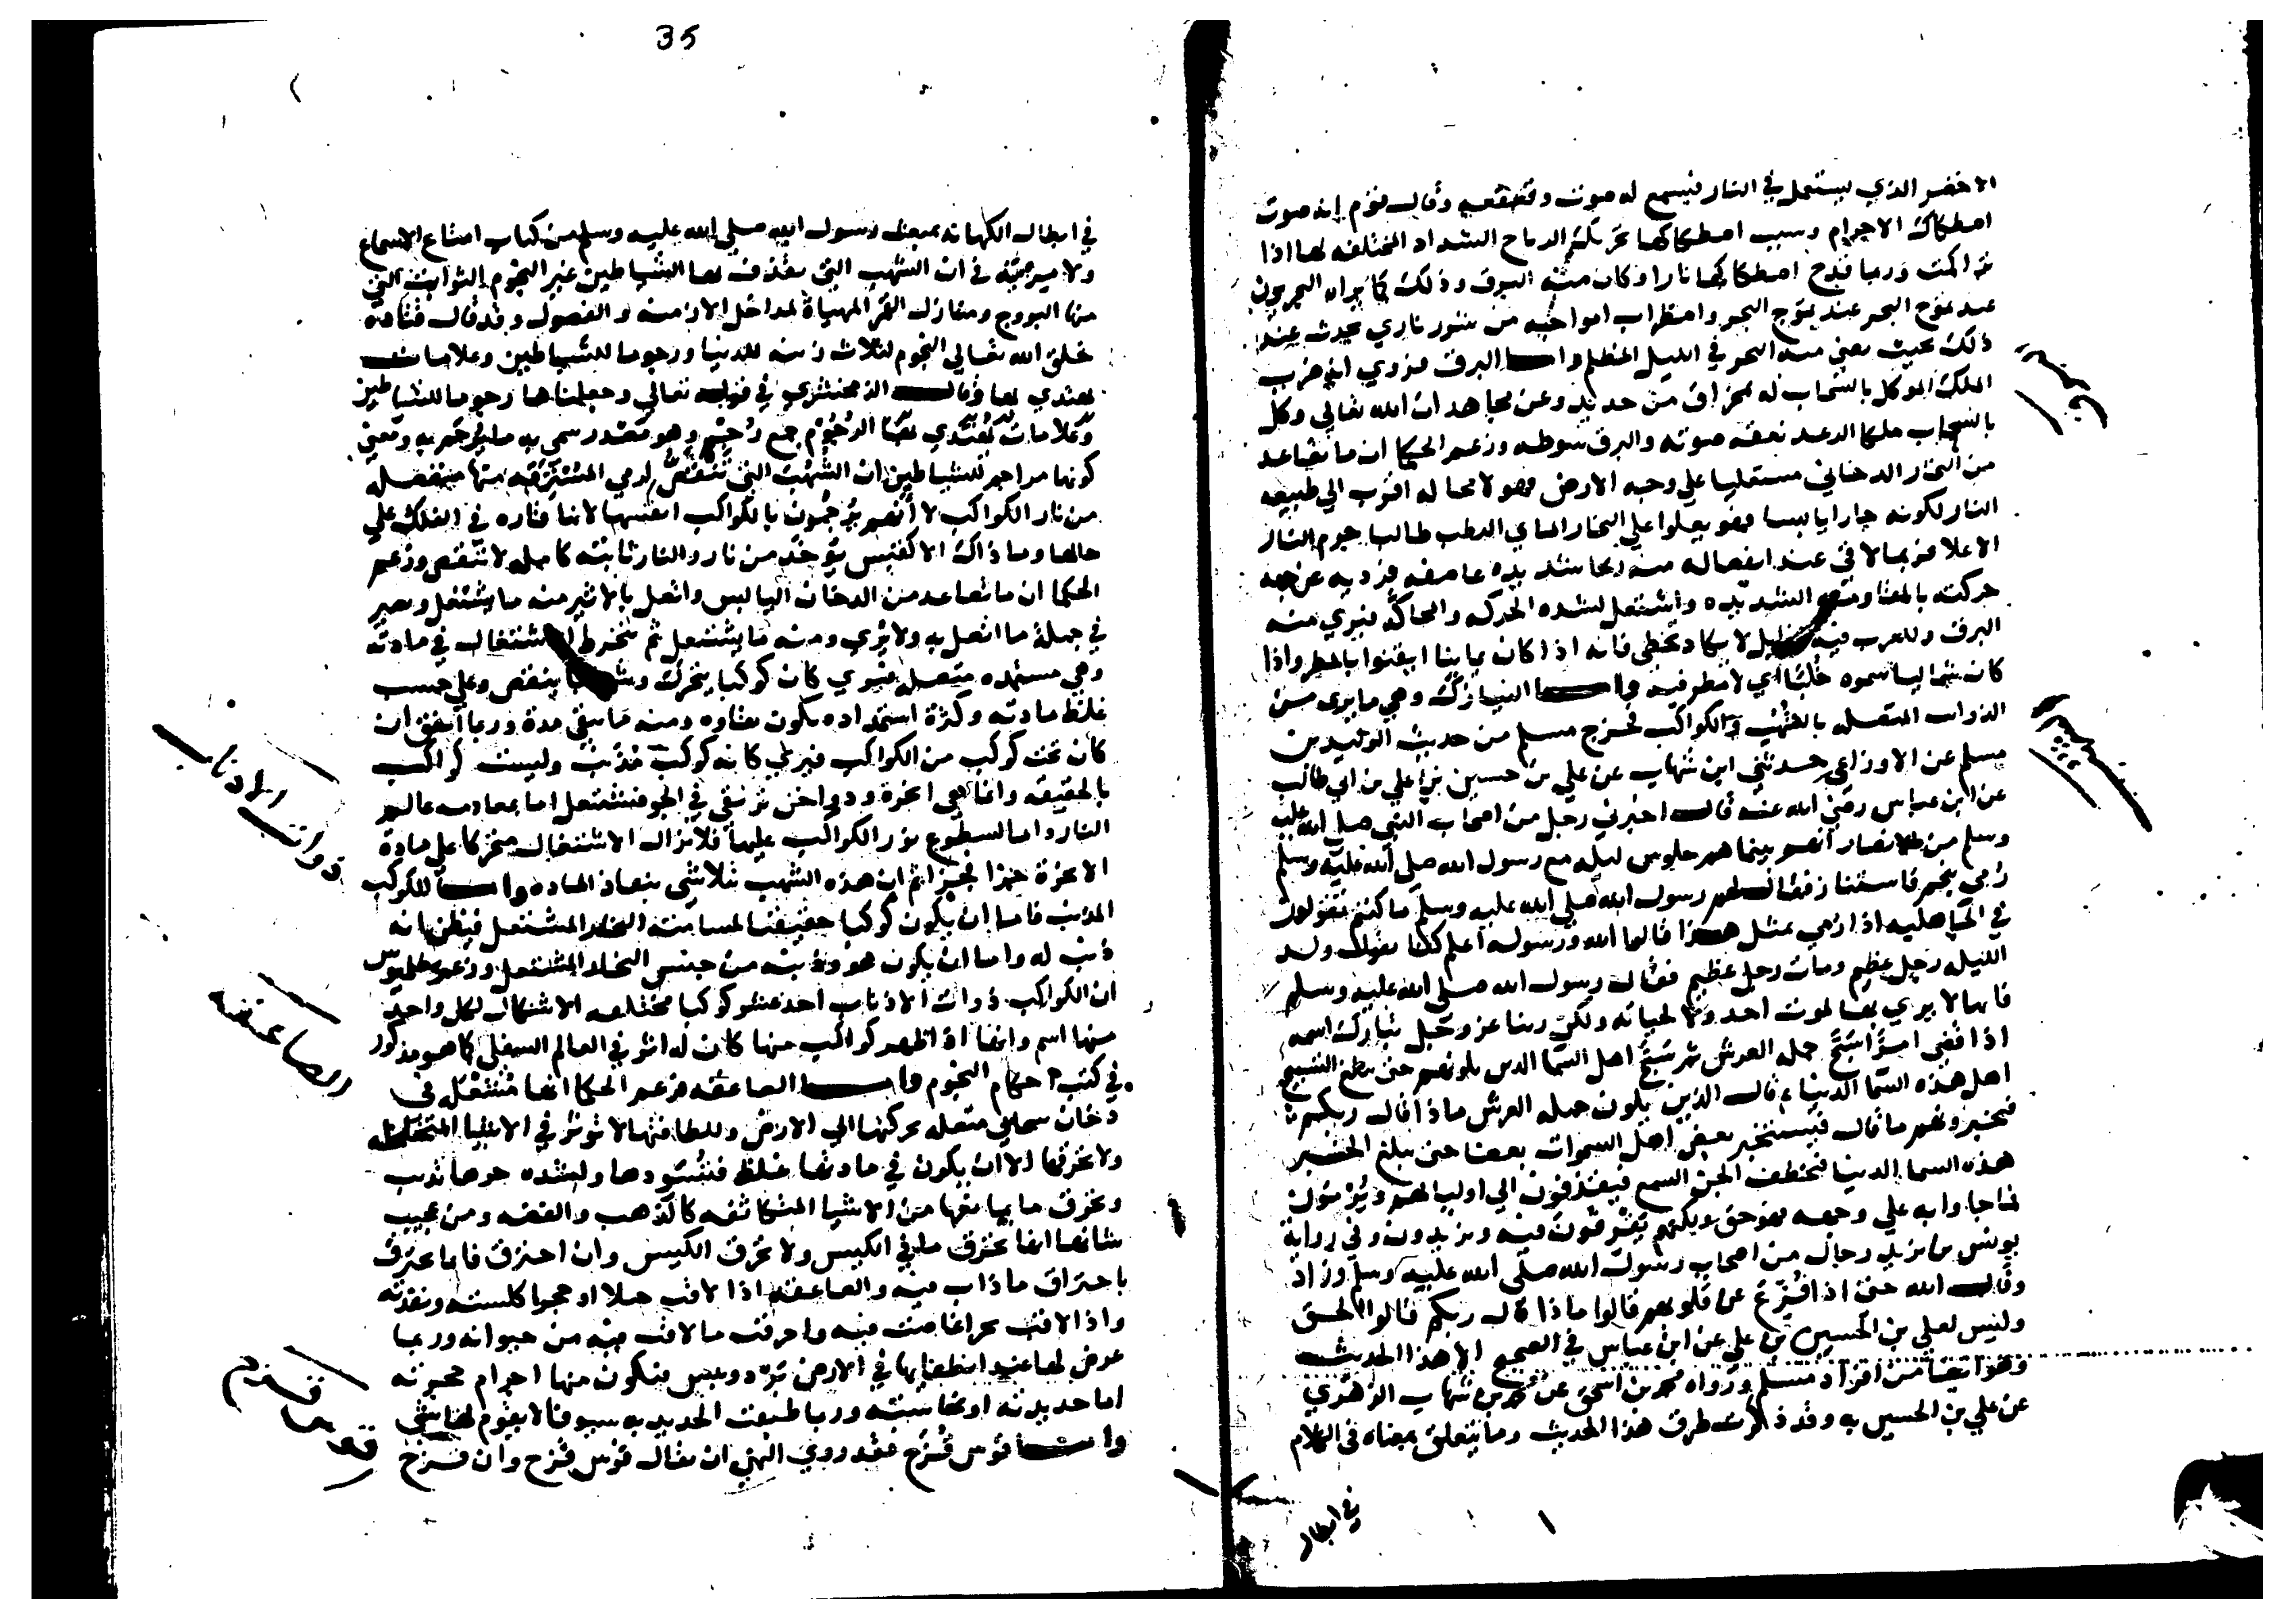 الاخضر الذي يستعمل في النار فيسمع له صوت وقعقعه وقال قوم انه صوت
اصطكاك الاجرام وسبب اصطكاكها تحريك الرياح الشداد المختلفه لها اذا
تراكمت وربما قدح اصطكاكها نارا وكان منه البرق وذلك كما يراه البحريون
عند تموج البحر عند تموج البحر واضطراب امواجه من شرر ناري يحدث عند
ذلك بحيث يضي منه البحر في الليل المظلم واما البرق فروي انه ضرب
الملك الموكل بالسحاب له بمخراق من حديد وعن مجاهد ان الله تعالي وكل
بالسحاب ملكا الرعد نعقه صوته والبرق سوطه وزعم الحكما ان ما تصاعد
من البخار الدخاني مستعليا علي وجه الارض فهو لا محاله اقرب الي طبيعه
النار لكونه حارا يابسا فهو يعلوا علي البخار الماي الرطب طالبا جرم النار
الاعلا فربما لاقي عند انفصاله منه ريحا شديده عاصفه فرديه عن جهه
حركته بالمقاومه الشديده واشتعل لشده الحركه والمحاكه فيري منه
البرق وللعرب فيه لا يكاد يخطي فانه اذا كان يمانيا ايقنوا بالمطر واذا
كان شماليا سموه خلبا اي لا مطر فيه واما النيازك وهي ما يري من
الذواب المتصله بالشهب والكواكب فخرج مسلم من حديث الوليد بن
مسلم عن الاوزاعي حدثني ابن شهاب عن علي بن حسين بن علي بن ابي طالب
عن ابن عباس رضي الله عنه قال اخبرني رجل من اصحاب النبي صلي الله عليه
وسلم من الانصار انهم بينما هم جلوس ليله مع رسول الله صلي الله عليه وسلم
رمي بنجم فاستنار فقال لهم رسول الله صلي الله عليه وسلم ما كنتم تقولون
في الجاهليه اذا رمي بمثل هذا قالوا الله ورسوله اعلم كنا نقول ولد
الليله رجل عظيم ومات رجل عظيم فقال رسول الله صلي الله عليه وسلم
فانها لا يرمي بها لموت احد ولا لحياته ولكن ربنا عز وجل تبارك اسمه
اذا قضي امرًا سبَّح حمله العرش ثم سبح اهل السما الذين يلونهم حتي يبلغ التسبيح
اهل هذه السما الدنيا قال الذين يلون حمله العرش ماذا قال ربكم
فيخبرونهم ما قال فيستخبر بعض اهل السموات بعضا حتي يبلغ الخبر
هذه السما الدنيا فتخطف الجن السمع فيقذفون الي اوليايهم ويرمون
فما جاوا به علي وجهه فهو حق ولكنهم يقرفون فيه ويزيدون وفي روايه
يونس بن يزيد رجال من اصحاب رسول الله صلي الله عليه وسلم وزاد
وقال الله حتي اذا فُزِّعَ عن قلوبهم قالوا ماذا قال ربكم قالوا الحق
وليس لعلي بن الحسين بن علي عن ابن عباس في الصحيح الا هذا الحديث
وهو ايضا من افراد مسلم ورواه محمد بن اسحق عن محمد بن شهاب الزهري
عن علي بن الحسين به وقد ذكرت طرق هذا الحديث وما يتعلق بمعناه في الكلام
في ابطال
35
في ابطال الكهانه بمبعث رسول الله صلي الله عليه وسلم من كتاب امتاع الاسماع
ولا مرية في ان الشهب التي تقذف بها الشياطين غير النجوم الثوابت التي
منها البروج ومنازل القمر المهياة لمداخل الازمنه والفصول وقد قال قتاده
خلق الله تعالي النجوم لثلاث زينه للدنيا ورجوما للشياطين وعلامات
يهتدي بها وقال الزمخشري في قوله تعالي وجعلناها رجوما للشياطين
وعلامات يُهتدي بها الرُجُوْم جمع رَجْم وهو مصدر سمي به ما يُرجم به ومعني
كونها مراجم للشياطين ان الشهُب التي تنقَضّ لرمي المسترقه منها منفصله
من نار الكواكب لا أنهم يُرجَمون بالكواكب انفسها لانها قاره في الفلك علي
حالها وما ذاك الا كقبس يؤخذ من نار والنار ثابته كامله لا تنقص وزعم
الحكما ان ما تصاعد من الدخان اليابس واتصل بالاثير منه ما يشتعل ويصير
في جملة ما اتصل به ولا يُري ومنه ما يشتعل ثم ينخرط الاشتعال في مادته
وهي مستمده متصله فيري كان كوكبا يتحرك وشهابا ينقض وعلي حسب
غلظ مادته وكثرة استمداده يكون بقاوه ومنه ما يبقي مدة وربما اتفق ان
كان تحت كوكب من الكواكب فيري كانه كوكب مُذَنَّب وليست كواكب
بالحقيقه وانما هي ابخرة ودواخن ترتقي في الجو فتشتعل اما بمصادمه عالم
النار واما لسطوع نور الكواكب عليها فلا يزال الاشتعال متحركا علي مادة
الابخرة جزءا فجزا ثم ان هذه الشهب تتلاشي بنفاذ الماده واما الكوكب
المذنب فاما ان يكون كوكبا حقيقيا لمسامته البخار المشتعل فيظن انه
ذنب له واما ان يكون هو وذنبه من جنس البخار المشتعل وزعم بطليموس
ان الكواكب ذوات الاذناب احد عشر كوكبا مختلفه الاشكال لكل واحد
منها اسم وانها اذا ظهر كواكب منها كان له اثر في العالم السفلي كما هو مذكور
في كتب احكام النجوم واما الصاعقه فزعم الحكما انها مشتعل في
دخان سحابي متصله بحركتها الي الارض وللطافتها لا تؤثر في الاشيا المتخلخله
ولا تحرقها الا ان يكون في مادتها غلظ فتسودها ولشده حرها تذيب
وتحرق ما يمانعها من الاشيا المتكاثفه كالذهب والفضه ومن عجيب
شانها انها تحرق ما في الكيس ولا تحرق الكيس وان احترق فانما يحترق
باحتراق ما ذاب فيه والصاعقه اذا لاقت جبلا او حجرا كلسته ونفذته
واذا لاقت بحرا غاصت فيه واحرقت ما لاقت فيه من حيوانه وربما
عرض لها عند انطفايها في الارض بَرْد ويبس فتكون منها اجرام حجريه
اما حديديه او نحاسيه وربما طبعت الحديديه سيوفا لا يقوم لها شي
واما قوس قُزَح فقد روي النهي ان يقال قوس قزح وان قزح
ذوات الاذناب
الصاعقه
قوس قزح